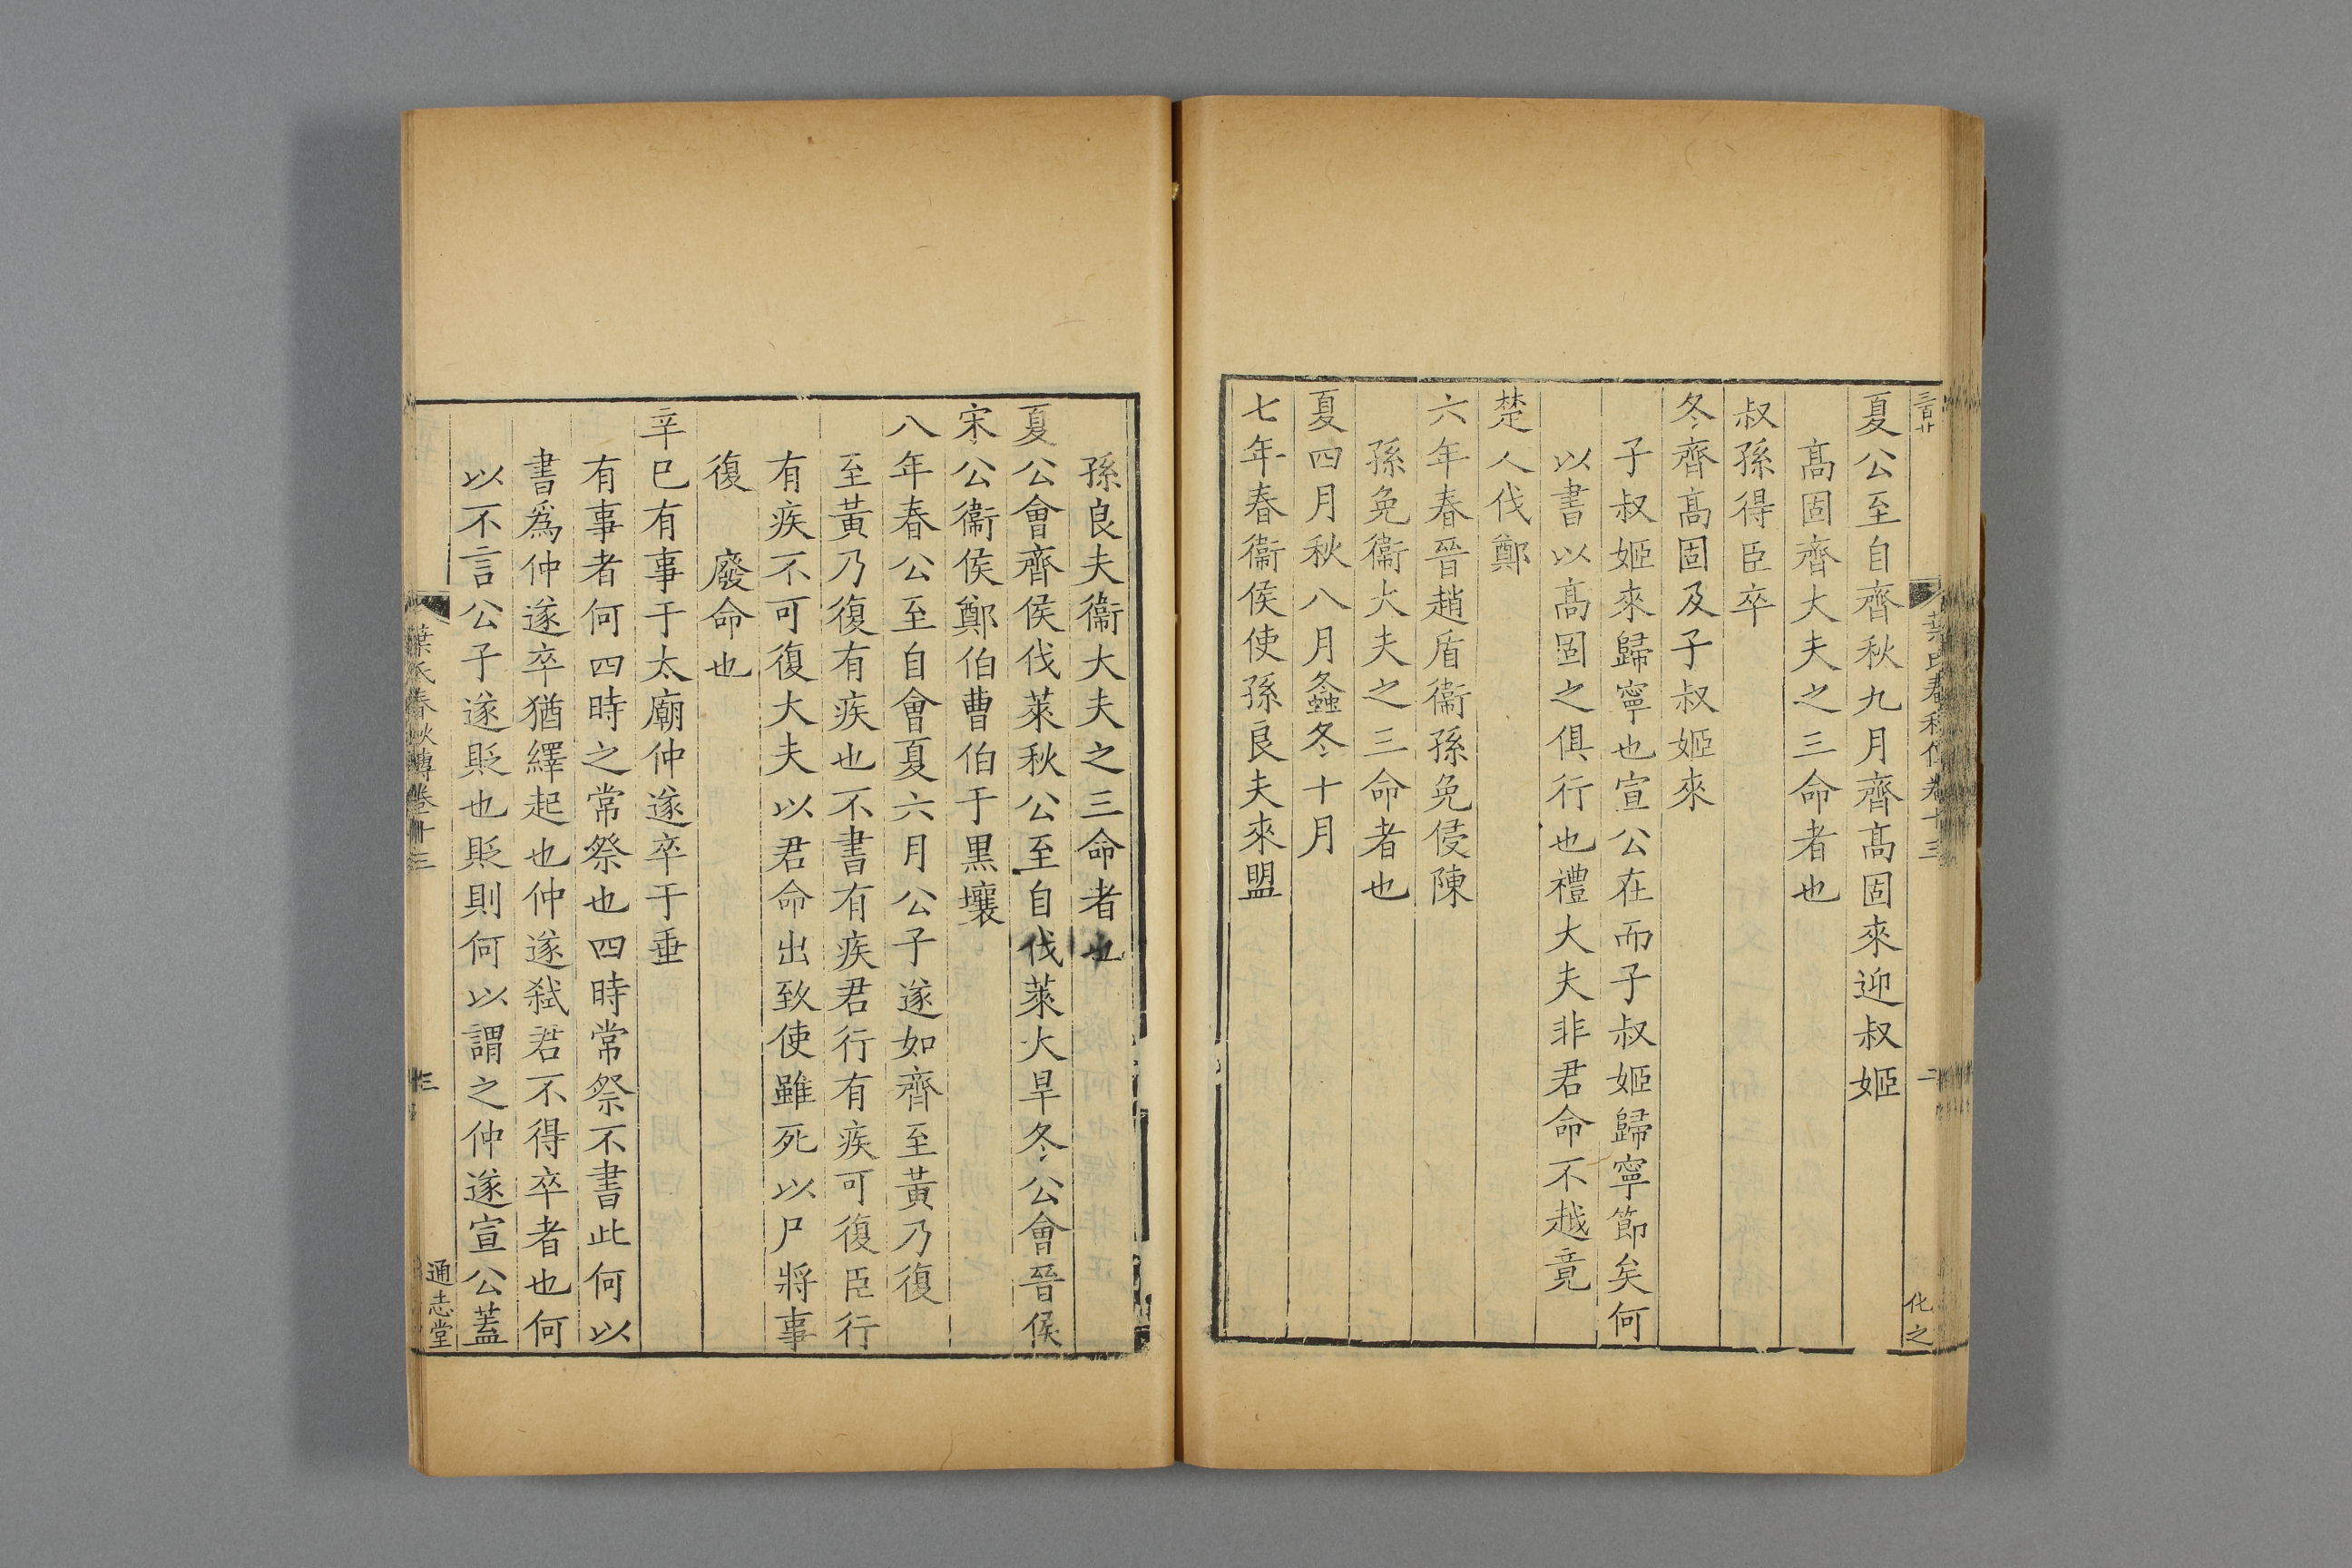 夏公至自齊秋九月齊髙固來迎叔姬
髙固齊大夫之三命者也
叔孫得臣卒
冬齊髙固及子叔姬來
子叔姬來歸寧也宣公在而子叔姬歸寧節矣何
以書以髙固之俱行也禮大夫非君命不越竟
楚人伐鄭
六年春晉趙盾衞孫免侵陳
孫免衞大夫之三命者也
夏四月秋八月螽冬十月
七年春衞侯使孫良夫來盟
化之
孫良夫衞大夫之三命者也
夏公會齊侯伐萊秋公至自伐萊大旱冬公會晉侯
宋公衞侯鄭伯曹伯于黒壤
八年春公至自會夏六月公子遂如齊至黃乃復
至黃乃復有疾也不書有疾君行有疾可復臣行
有疾不可復大夫以君命出致使雖死以尸將事
復 廢命也
辛巳有事于太廟仲遂卒于垂
有事者何四時之常祭也四時常祭不書此何以
書爲仲遂卒猶繹起也仲遂弑君不得卒者也何
以不言公子遂貶也貶則何以謂之仲遂宣公蓋
葉氏春秋傳卷十三
三
通志堂